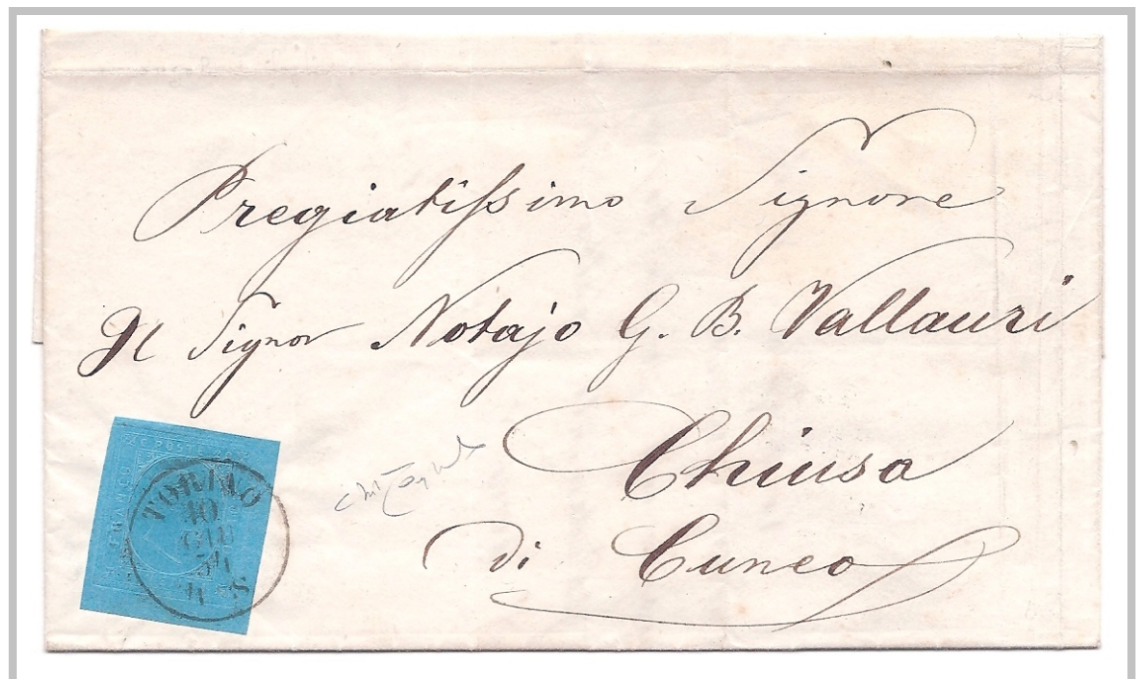 Pregiatissimo Signore
Il Signor Notajo G. B. Vallauri
Chiusa
di Cuneo
TORINO
10
GIU
54